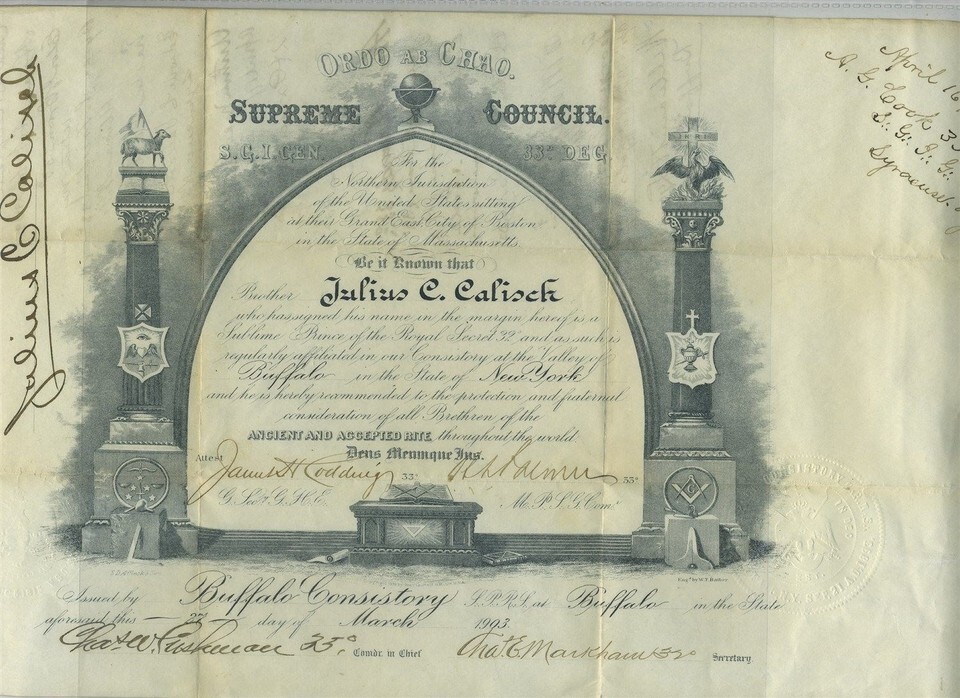 Julius C Calisch
April 16
A. G. Cook 33
S∴ G∴ I∴ G∴
Syracuse.
ORDO AB CHAO.
SUPREME COUNCIL.
S.G.I.GEN. 33º DEG.
For the
Northern Jurisdiction
of the United States sitting
at their Grand East City of Boston
in the State of Massachusetts.
Be it Known that
Brother Julius C. Calisch
who has signed his name in the margin hereof is a
Sublime Prince of the Royal Secret 32º and as such is
regularly affiliated in our Consistory at the Valley of
Buffalo in the State of New York
and he is hereby recommended to the protection and fraternal
consideration of all Brethren of the
ANCIENT AND ACCEPTED RITE throughout the world.
Deus Meumque Jus.
Attest
James H Codding 33º 33º
G. Sec? G. H. E. M. P. S. G. Com.
G
Eng'd by W.T. Bather
Issued by Buffalo Consistory S.P.R.S. at Buffalo in the State
aforesaid this 27 day of March 1903.
Chas W. Cushman 33º Comdr. in Chief Chas E. Markham 32º Secretary.